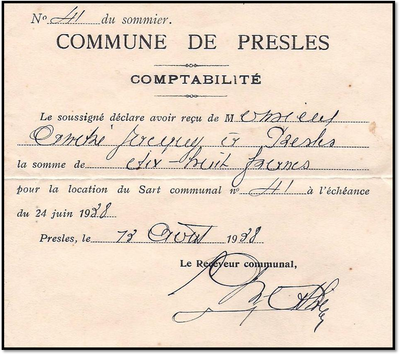 N° 41 du sommier.
COMMUNE DE PRESLES
COMPTABILITÉ
Le soussigné déclare avoir reçu de Monsieur
André Jacquy à Presles
la somme de dix-huit francs
pour la location du Sart communal n° 41 à l'échéance
du 24 juin 1938
Presles, le 13 août 1938
Le Receveur communal,